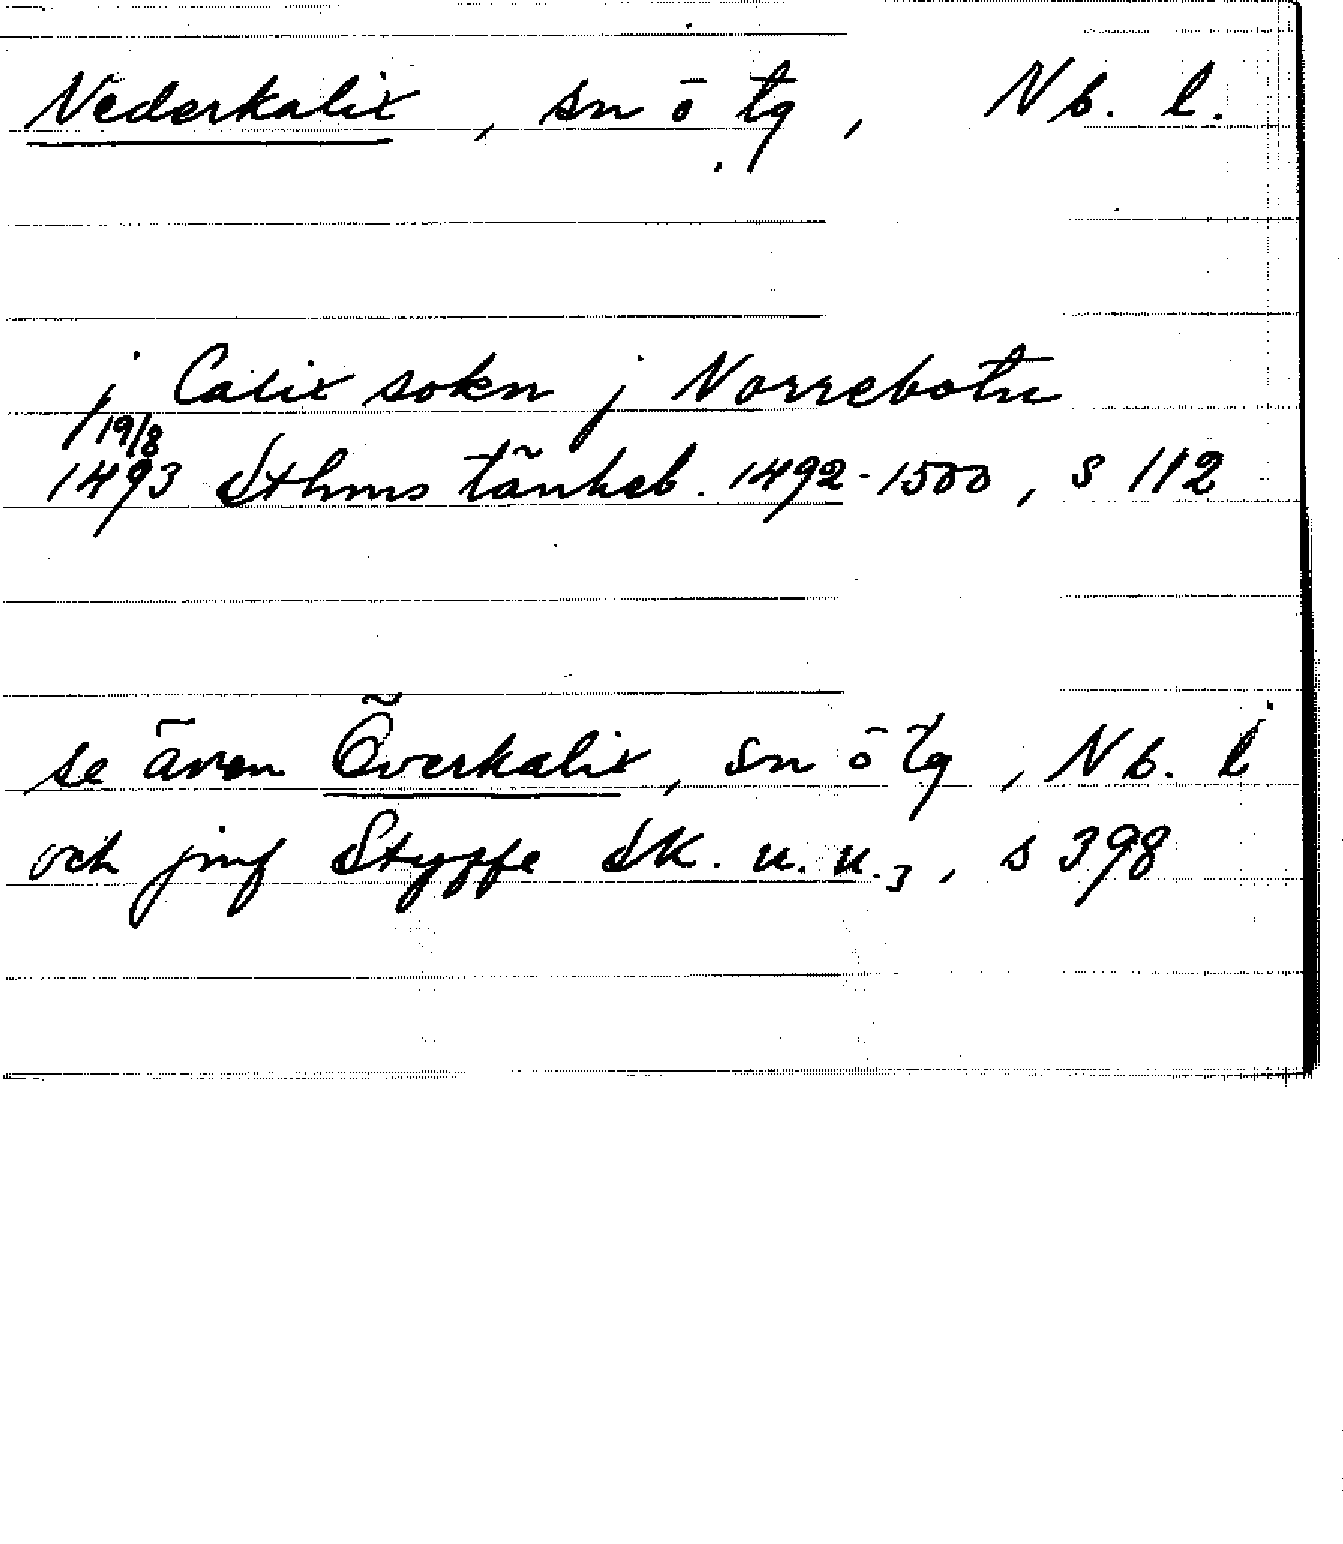 Nederkalix, sn ö tg, Nb. l.
j Calix sokn j Norrebotn
19/8
1493 Sthms tänkeb. 1492-1500, s 112
se även Överkalix, sn ö tg, Nb. l
och jmf Styffe SK. u. u.3, s 398